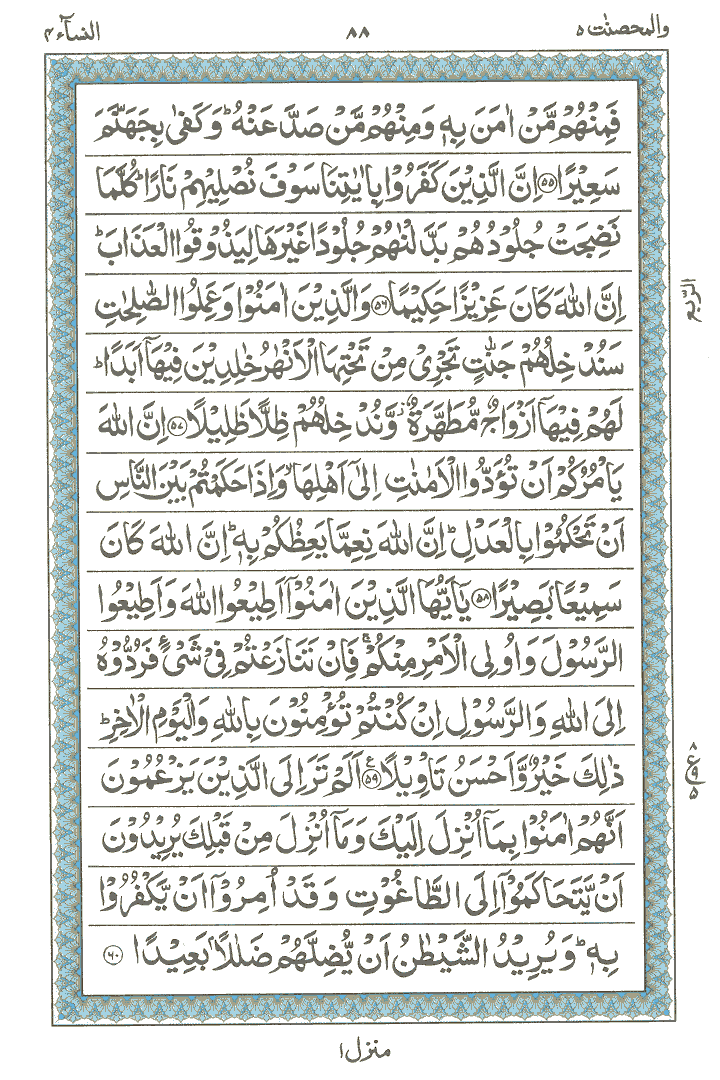 والمحصنت ٥ ٨٨ النسآء ٤
فَمِنْهُمْ مَّنْ اٰمَنَ بِهٖ وَمِنْهُمْ مَّنْ صَدَّ عَنْهُ ؕ وَكَفٰى بِجَهَنَّمَ
سَعِيْرًا ﴿۵۵﴾ اِنَّ الَّذِيْنَ كَفَرُوْا بِاٰيٰتِنَا سَوْفَ نُصْلِيْهِمْ نَارًا ؕ كُلَّمَا
نَضِجَتْ جُلُوْدُهُمْ بَدَّلْنٰهُمْ جُلُوْدًا غَيْرَهَا لِيَذُوْقُوا الْعَذَابَ ؕ
اِنَّ اللّٰهَ كَانَ عَزِيْزًا حَكِيْمًا ﴿۵۶﴾ وَالَّذِيْنَ اٰمَنُوْا وَعَمِلُوا الصّٰلِحٰتِ
الربع
سَنُدْخِلُهُمْ جَنّٰتٍ تَجْرِيْ مِنْ تَحْتِهَا الْاَنْهٰرُ خٰلِدِيْنَ فِيْهَاۤ اَبَدًا ؕ
لَهُمْ فِيْهَاۤ اَزْوَاجٌ مُّطَهَّرَةٌ ؗ وَّنُدْخِلُهُمْ ظِلًّا ظَلِيْلًا ﴿۵۷﴾ اِنَّ اللّٰهَ
يَاْمُرُكُمْ اَنْ تُؤَدُّوا الْاَمٰنٰتِ اِلٰۤى اَهْلِهَا ۙ وَاِذَا حَكَمْتُمْ بَيْنَ النَّاسِ
اَنْ تَحْكُمُوْا بِالْعَدْلِ ؕ اِنَّ اللّٰهَ نِعِمَّا يَعِظُكُمْ بِهٖ ؕ اِنَّ اللّٰهَ كَانَ
سَمِيْعًۢا بَصِيْرًا ﴿۵۸﴾ يٰۤاَيُّهَا الَّذِيْنَ اٰمَنُوْۤا اَطِيْعُوا اللّٰهَ وَاَطِيْعُوا
الرَّسُوْلَ وَاُولِي الْاَمْرِ مِنْكُمْ ۚ فَاِنْ تَنَازَعْتُمْ فِيْ شَيْءٍ فَرُدُّوْهُ
اِلَى اللّٰهِ وَالرَّسُوْلِ اِنْ كُنْتُمْ تُؤْمِنُوْنَ بِاللّٰهِ وَالْيَوْمِ الْاٰخِرِ ؕ
ذٰلِكَ خَيْرٌ وَّاَحْسَنُ تَاْوِيْلًا ﴿۵۹﴾ ع اَلَمْ تَرَ اِلَى الَّذِيْنَ يَزْعُمُوْنَ
٨ ع ٩ ٥
اَنَّهُمْ اٰمَنُوْا بِمَاۤ اُنْزِلَ اِلَيْكَ وَمَاۤ اُنْزِلَ مِنْ قَبْلِكَ يُرِيْدُوْنَ
اَنْ يَّتَحَاكَمُوْۤا اِلَى الطَّاغُوْتِ وَقَدْ اُمِرُوْۤا اَنْ يَّكْفُرُوْا
بِهٖ ؕ وَيُرِيْدُ الشَّيْطٰنُ اَنْ يُّضِلَّهُمْ ضَلٰلًۢا بَعِيْدًا ﴿۶۰﴾
منزل ١